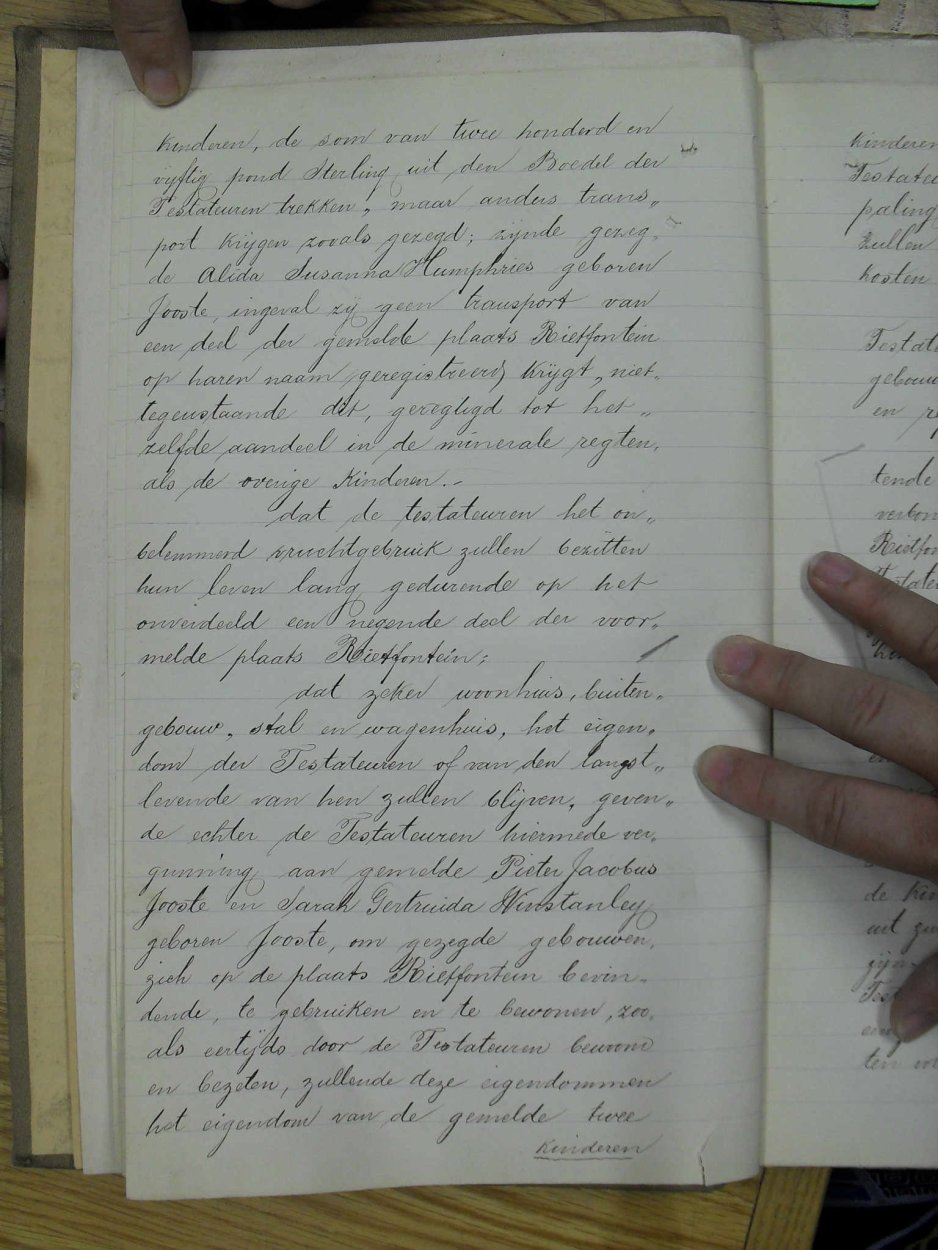 kinderen, de som van twee honderd en
vijftig pond Sterling uit den Boedel der
Testateuren trekken, maar anders trans„
port krijgen zooals gezegd; zijnde gezeg„
de Alida Susanna Humphries geboren
Jooste, ingeval zij geen transport van
een deel der gemelde plaats Rietfontein
op haren naam geregistreerd krijgt, niet„
tegenstaande dit, geregtigd tot het„
zelfde aandeel in de minerale regten,
als de overige Kinderen.-
dat de testateuren het on„
belemmerd vruchtgebruik zullen bezitten
hun leven lang gedurende op het
onverdeeld een negende deel der voor„
melde plaats Rietfontein;
dat zeker woonhuis, buiten„
gebouw, stal en wagenhuis, het eigen„
dom der Testateuren of van den langst„
levende van hen zullen blijven, geven„
de echter de Testateuren hiermede ver„
gunning aan gemelde Pieter Jacobus
Jooste en Sarah Gertruida Winstanley
geboren Jooste, om gezegde gebouwen,
zich op de plaats Rietfontein bevin„
dende, te gebruiken en te bewonen, zoo„
als eertijds door de Testateuren bewoond
en bezeten, zullende deze eigendommen
het eigendom van de gemelde twee
kinderen
kinderen
Testateu
paling
zullen
kosten
Testate
gebouw
en re
tende
verbon
Rietfon
Testate
de kin
uit zu
zijn
Tes